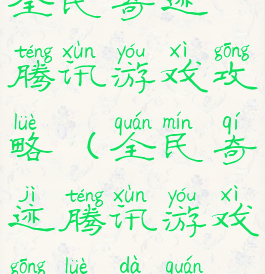 全民 奇迹
téng xùn yóu xì gōng
腾讯游戏攻
lüè quán mín qí
略（全民奇
jì téng xùn yóu xì
迹腾讯游戏
gōng lüè dà quán